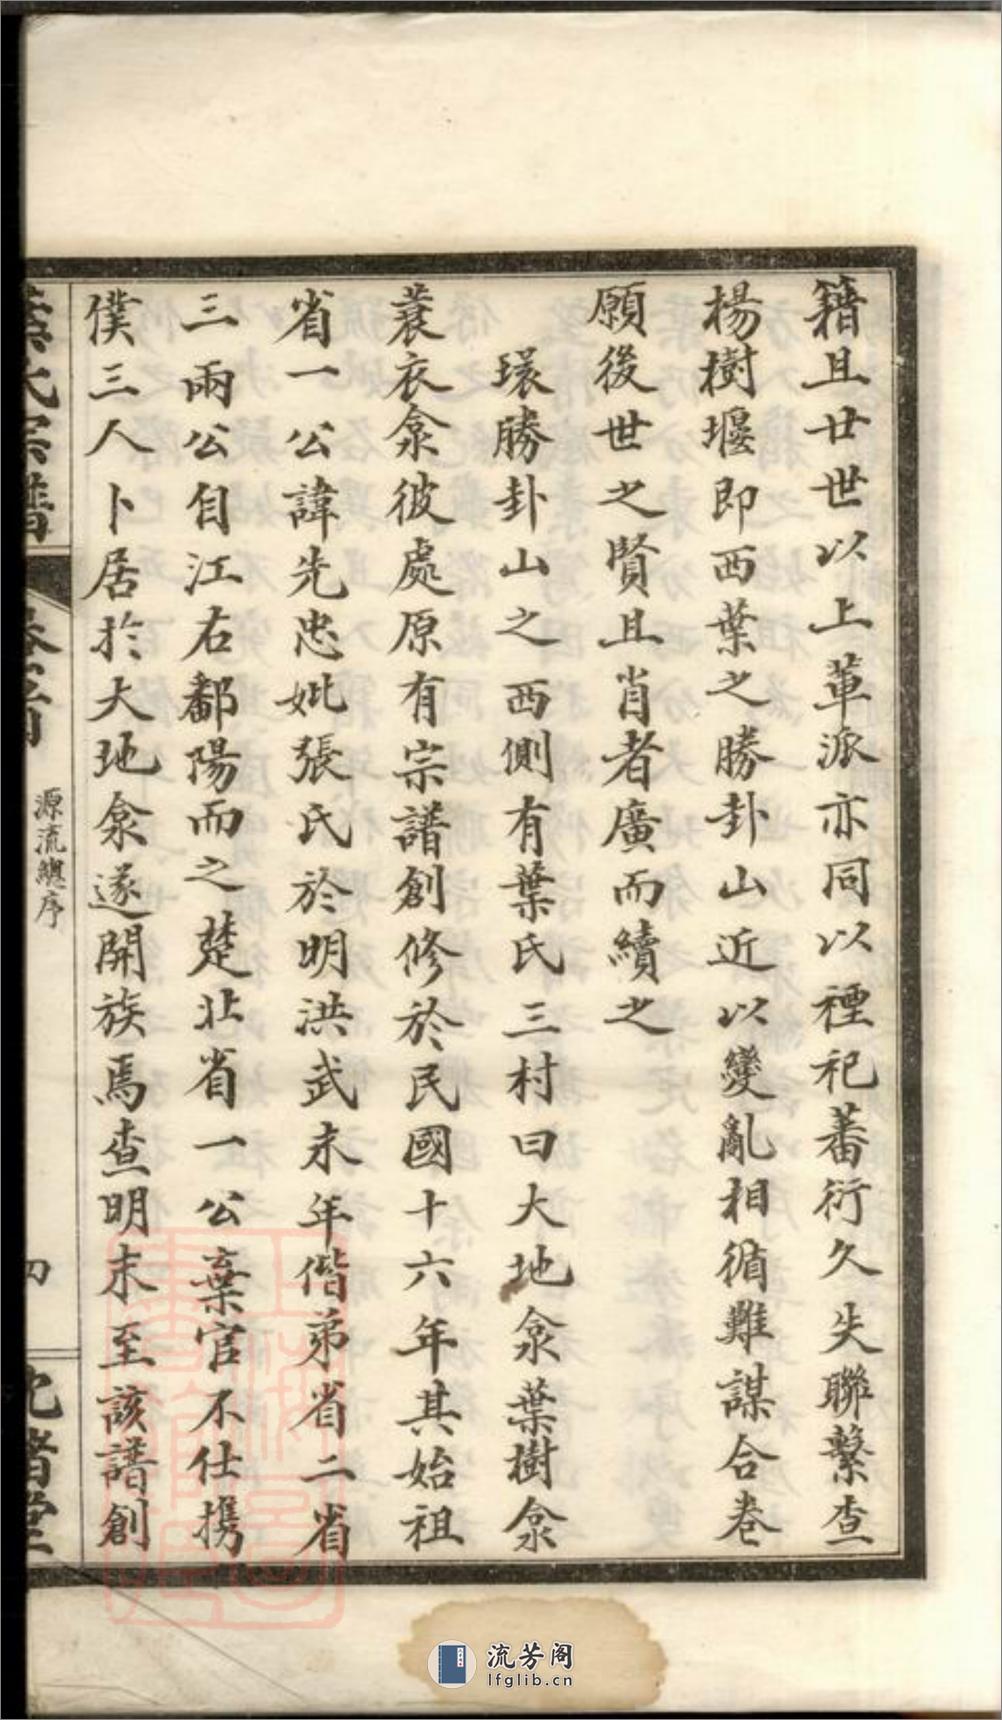 籍且廿世以上葷派亦同以禋祀蕃衍久失聯繫查
楊樹堰即西葉之勝卦山近以變亂相循難謀合卷
願後世之賢且肖者廣而續之
環勝卦山之西側有葉氏三村曰大地汆葉樹汆
蓑衣汆彼處原有宗譜創修於民國十六年其始祖
省一公諱先忠妣張氏於明洪武末年偕弟省二省
三兩公自江右鄱陽而之楚北省一公棄官不仕携
僕三人卜居於大地汆遂開族焉查明末至該譜創
葉氏宗譜
卷首
源流總序
四
沈諸堂
流芳阁
lfglib.cn